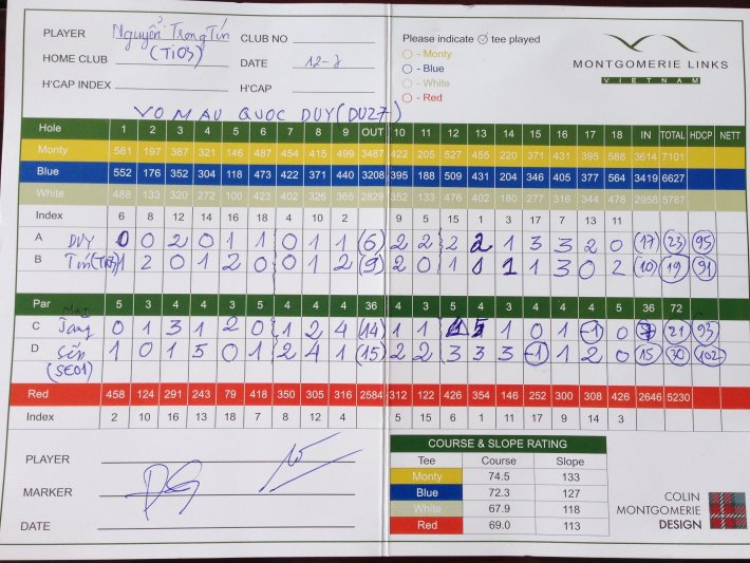 PLAYER Nguyễn Trọng Tín CLUB NO
HOME CLUB (Ti03) DATE 12-7
H'CAP INDEX H'CAP
Please indicate tee played
- Monty
- Blue
- White
- Red
MONTGOMERIE LINKS
VIETNAM
VO MAU QUOC DUY (DU27)
Hole 1 2 3 4 5 6 7 8 9 OUT 10 11 12 13 14 15 16 17 18 IN TOTAL HDCP NETT
Monty 581 197 387 321 146 487 454 415 499 3487 422 205 527 455 220 371 431 395 588 3614 7101
Blue 552 176 352 304 118 473 422 371 440 3208 395 188 509 431 204 346 405 377 564 3419 6627
White 488 133 320 272 100 423 402 326 365 2829 352 133 476 402 180 277 316 344 478 2958 5787
Index 6 8 12 14 16 18 4 10 2 9 5 15 1 3 17 7 13 11
A DUY 0 0 2 0 1 1 0 1 1 (6) 2 2 2 2 1 3 3 2 0 (17) (23) (95)
B Tín(Ti03) 1 2 0 1 2 0 0 1 2 (9) 2 0 1 1 1 3 0 2 (10) (19) (91)
Par 5 3 4 4 3 5 4 4 4 36 4 3 5 4 3 4 4 4 5 36 72
C Jang 0 1 3 1 2 0 1 2 4 (14) 1 1 1 0 1 -1 0 7 (21) (93)
D Sến 1 0 1 5 0 1 2 4 1 (15) 2 2 3 3 3 -1 1 2 0 (15) (30) (102)
(SE01)
Red 458 124 291 243 79 418 350 305 316 2584 312 122 426 354 146 252 300 308 426 2646 5230
Index 2 10 16 14 13 18 7 8 12 4 5 15 6 1 11 17 9 14 3
PLAYER
MARKER
DATE
COURSE & SLOPE RATING
Tee Course Slope
Monty 74.5 133
Blue 72.3 127
White 67.9 118
Red 69.0 113
COLIN
MONTGOMERIE
DESIGN